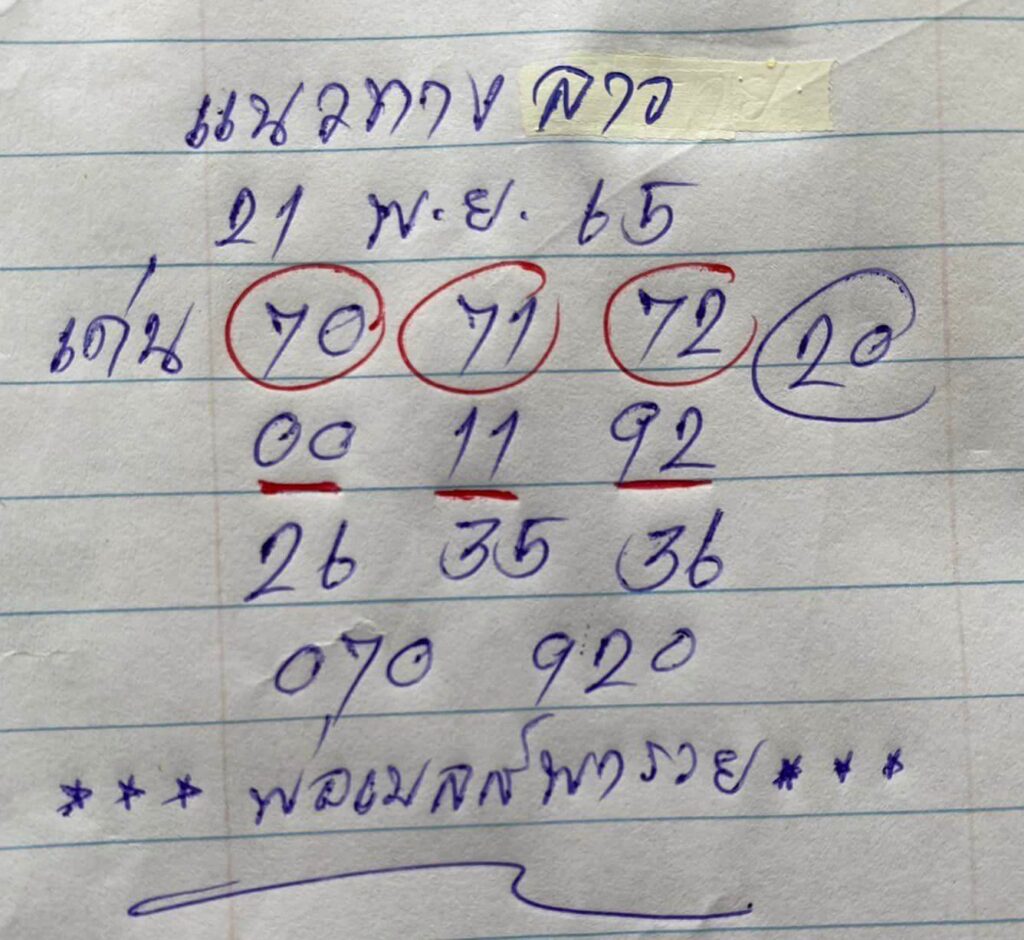 แนวทาง ลาว
21 พ.ย. 65
เด่น 70 71 72 20
00 11 92
26 35 36
070 920
*** พ่อเมลล์พารวย ***